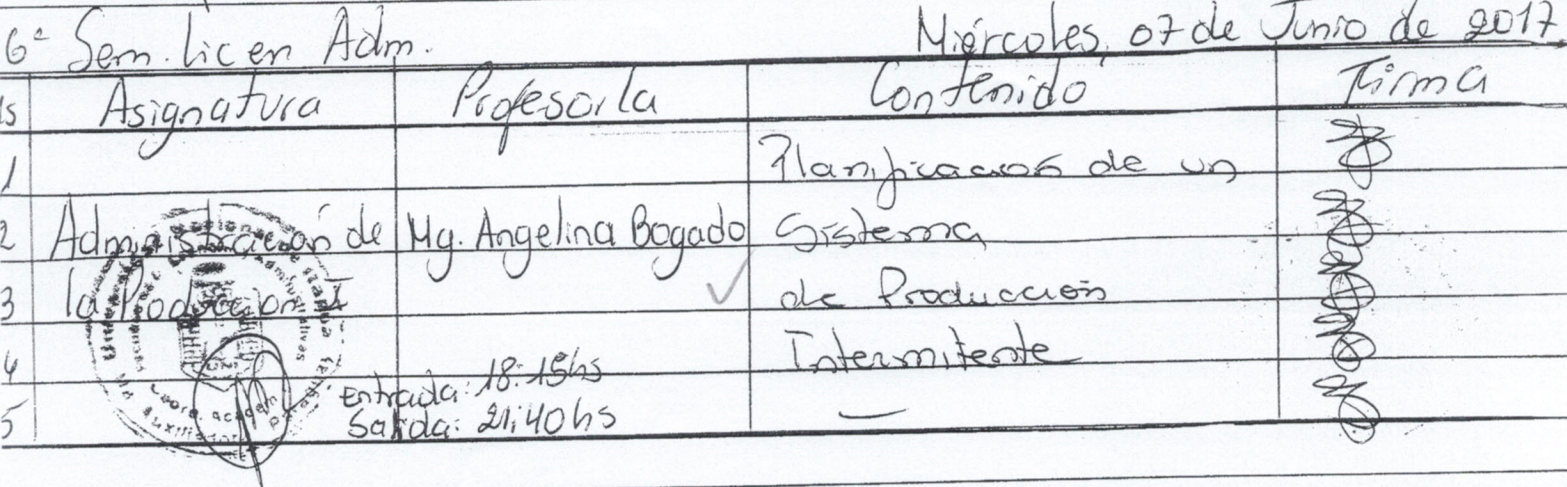 6º Sem. Lic en Adm. Miércoles, 07 de Junio de 2017
Asignatura Profesor/a Contenido Firma
1 Planificación de un
2 Administración de Mg. Angelina Bogado Sistema
3 la Producción I de Producción
4 Intermitente
Entrada: 18:15hs
5 Salida: 21:40hs —